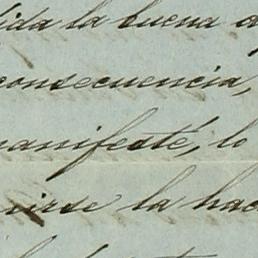 ida la buena
consecuencia,
manifesté, lo
irse la hac